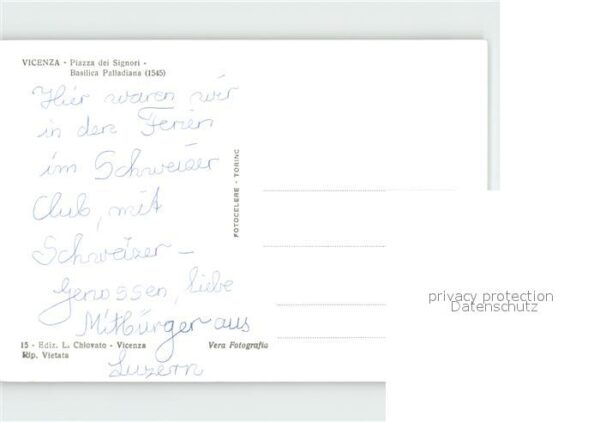 VICENZA - Piazza dei Signori -
Basilica Palladiana (1545)
Hier waren wir
in den Ferien
im Schweizer
Club, mit
Schweizer -
Genossen, liebe
Mitbürger aus
Luzern
FOTOCELERE - TORINO
15 - Ediz. L. Chiovato - Vicenza
Rip. Vietata
Vera Fotografia
privacy protection
Datenschutz